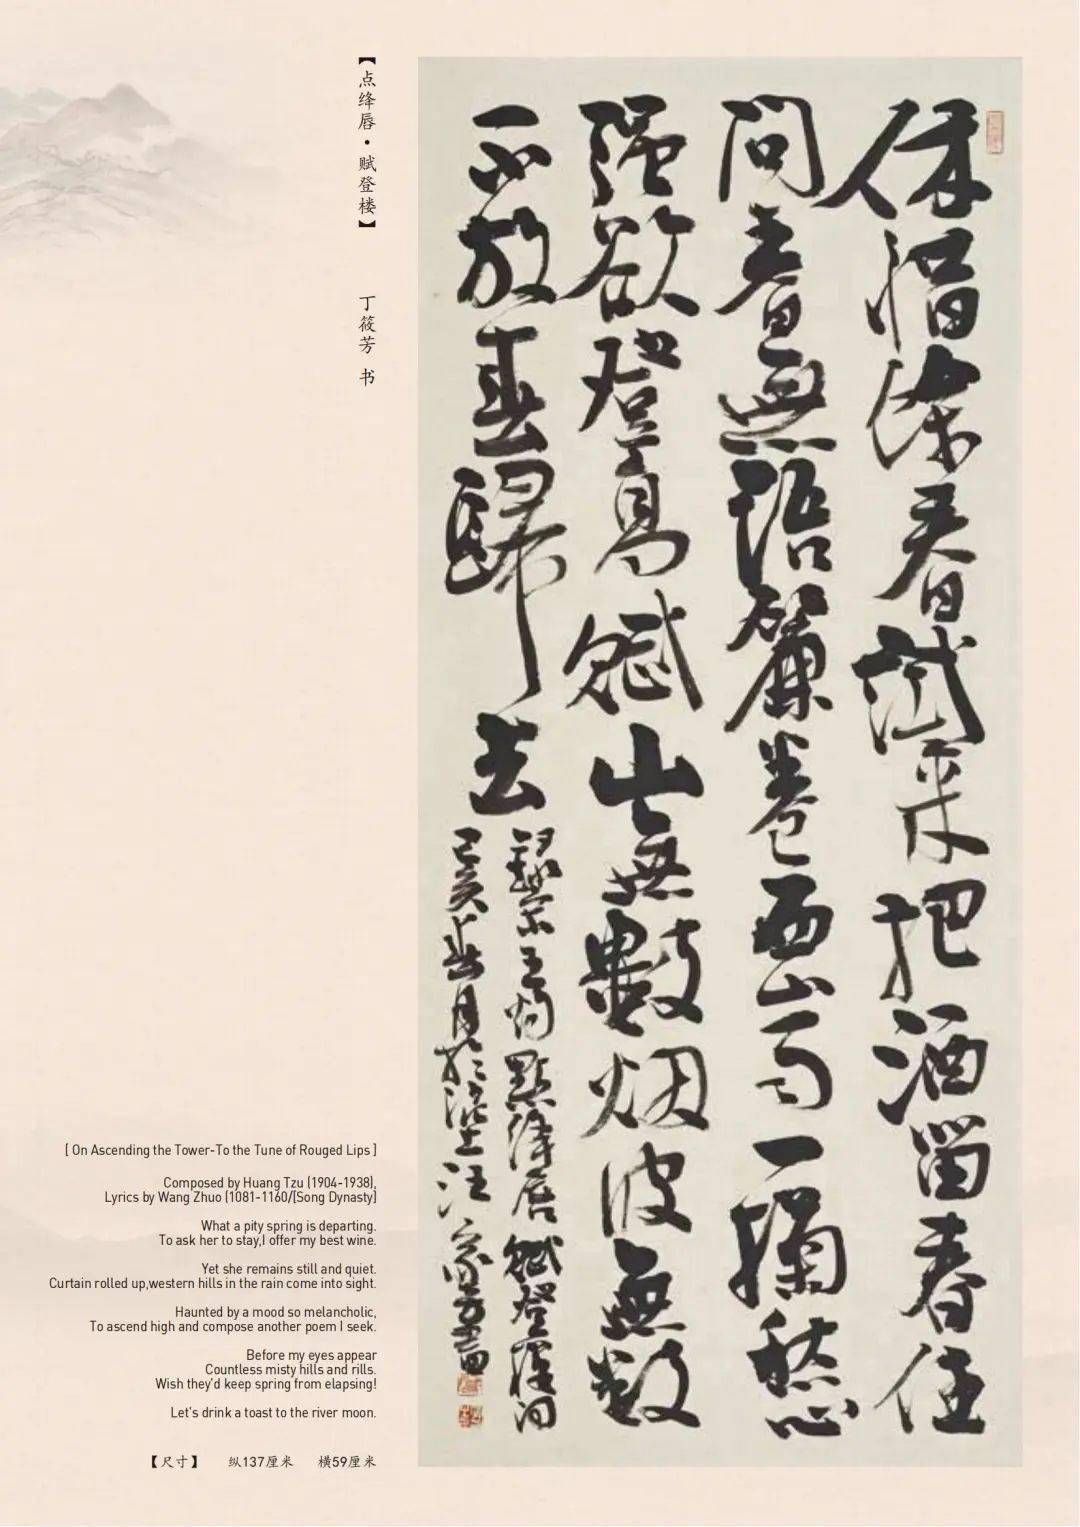 【点绛唇·赋登楼】 丁筱芳 书
休惜馀春試來把酒留春住
問春無語簾卷西山雨一掬愁心
强欲登高賦山無數烟波無數
不放春歸去
錄宋王灼點絳唇賦登樓詞
己亥春月於滬上 筱芳書
[ On Ascending the Tower-To the Tune of Rouged Lips ]
Composed by Huang Tzu (1904-1938),
Lyrics by Wang Zhuo (1081-1160/[Song Dynasty]
What a pity spring is departing.
To ask her to stay,I offer my best wine.
Yet she remains still and quiet.
Curtain rolled up,western hills in the rain come into sight.
Haunted by a mood so melancholic,
To ascend high and compose another poem I seek.
Before my eyes appear
Countless misty hills and rills.
Wish they'd keep spring from elapsing!
Let's drink a toast to the river moon.
【尺寸】 纵137厘米 横59厘米